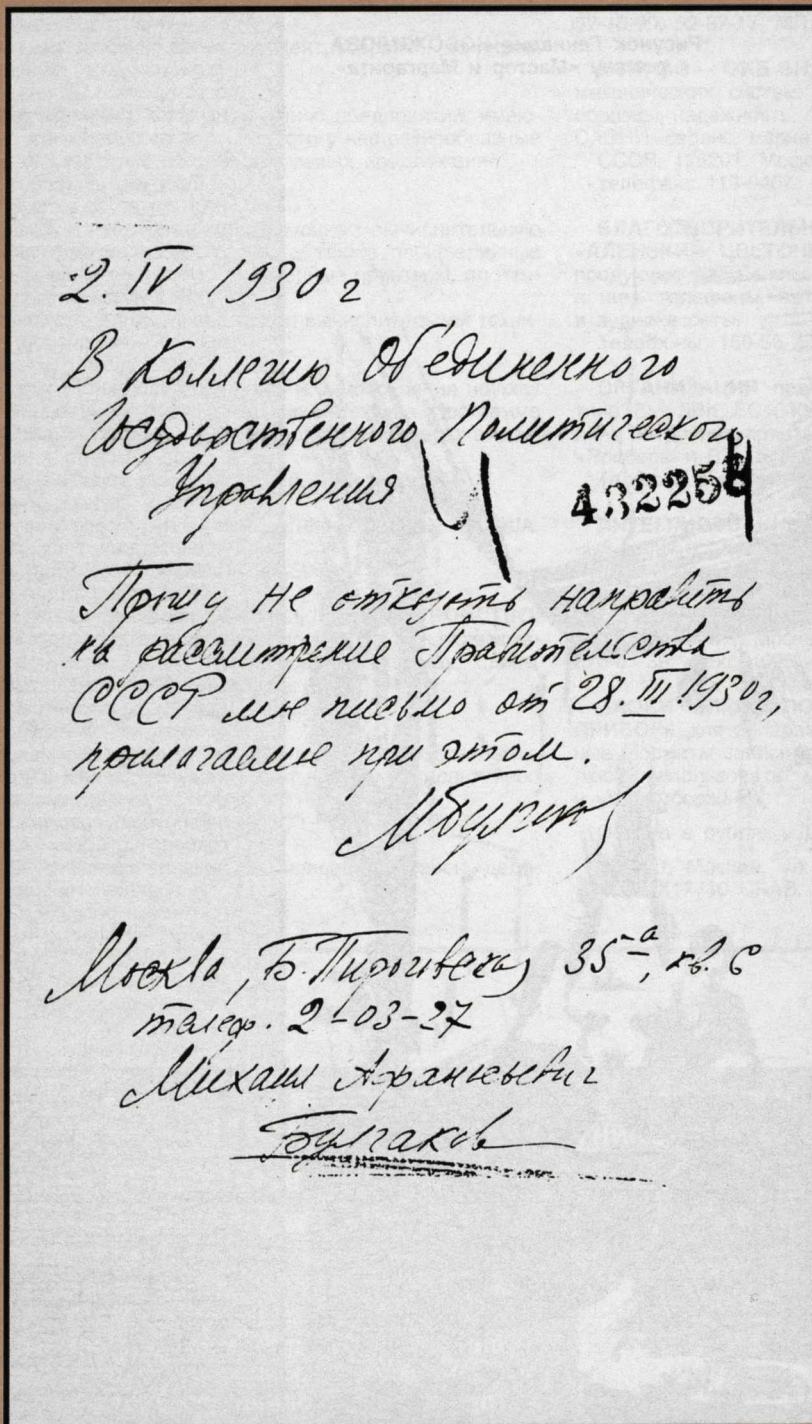 2. IV 1930 г
В Коллегию Об'единенного
Государственного Политического
Управления
432253
Прошу не отказать направить
на рассмотрение Правительства
СССР мое письмо от 28. III. 1930 г,
прилагаемое при этом.
МБулгаков
Москва, Б. Пироговская 35-а, кв. 6
телеф. 2-03-27
Михаил Афанасьевич
Булгаков